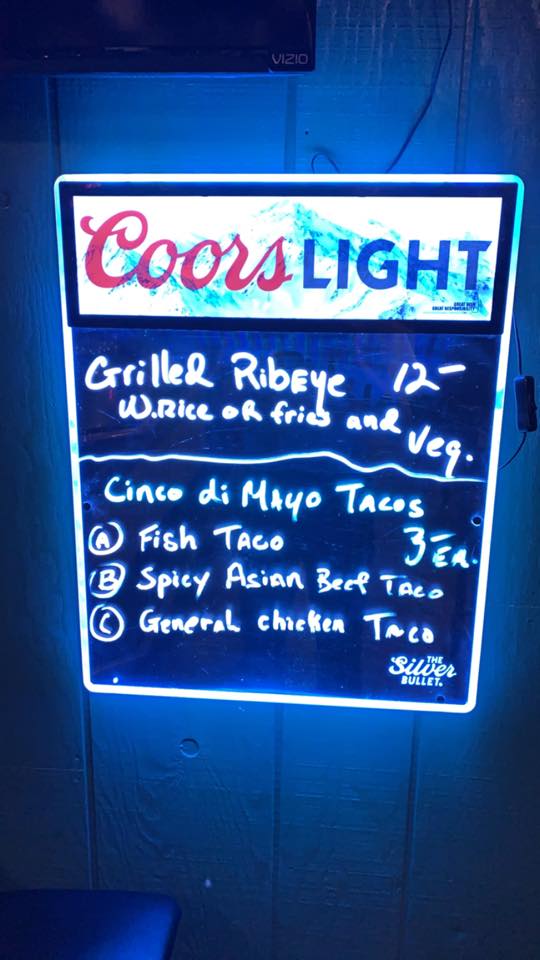 VIZIO
Coors LIGHT
GREAT BEER
GREAT RESPONSIBILITY
Grilled RibEye 12-
W.Rice oR fries and Veg.
Cinco di Mayo Tacos
A Fish Taco 3- EA.
B Spicy Asian Beef Taco
C General chicken Taco
THE
Silver
BULLET.